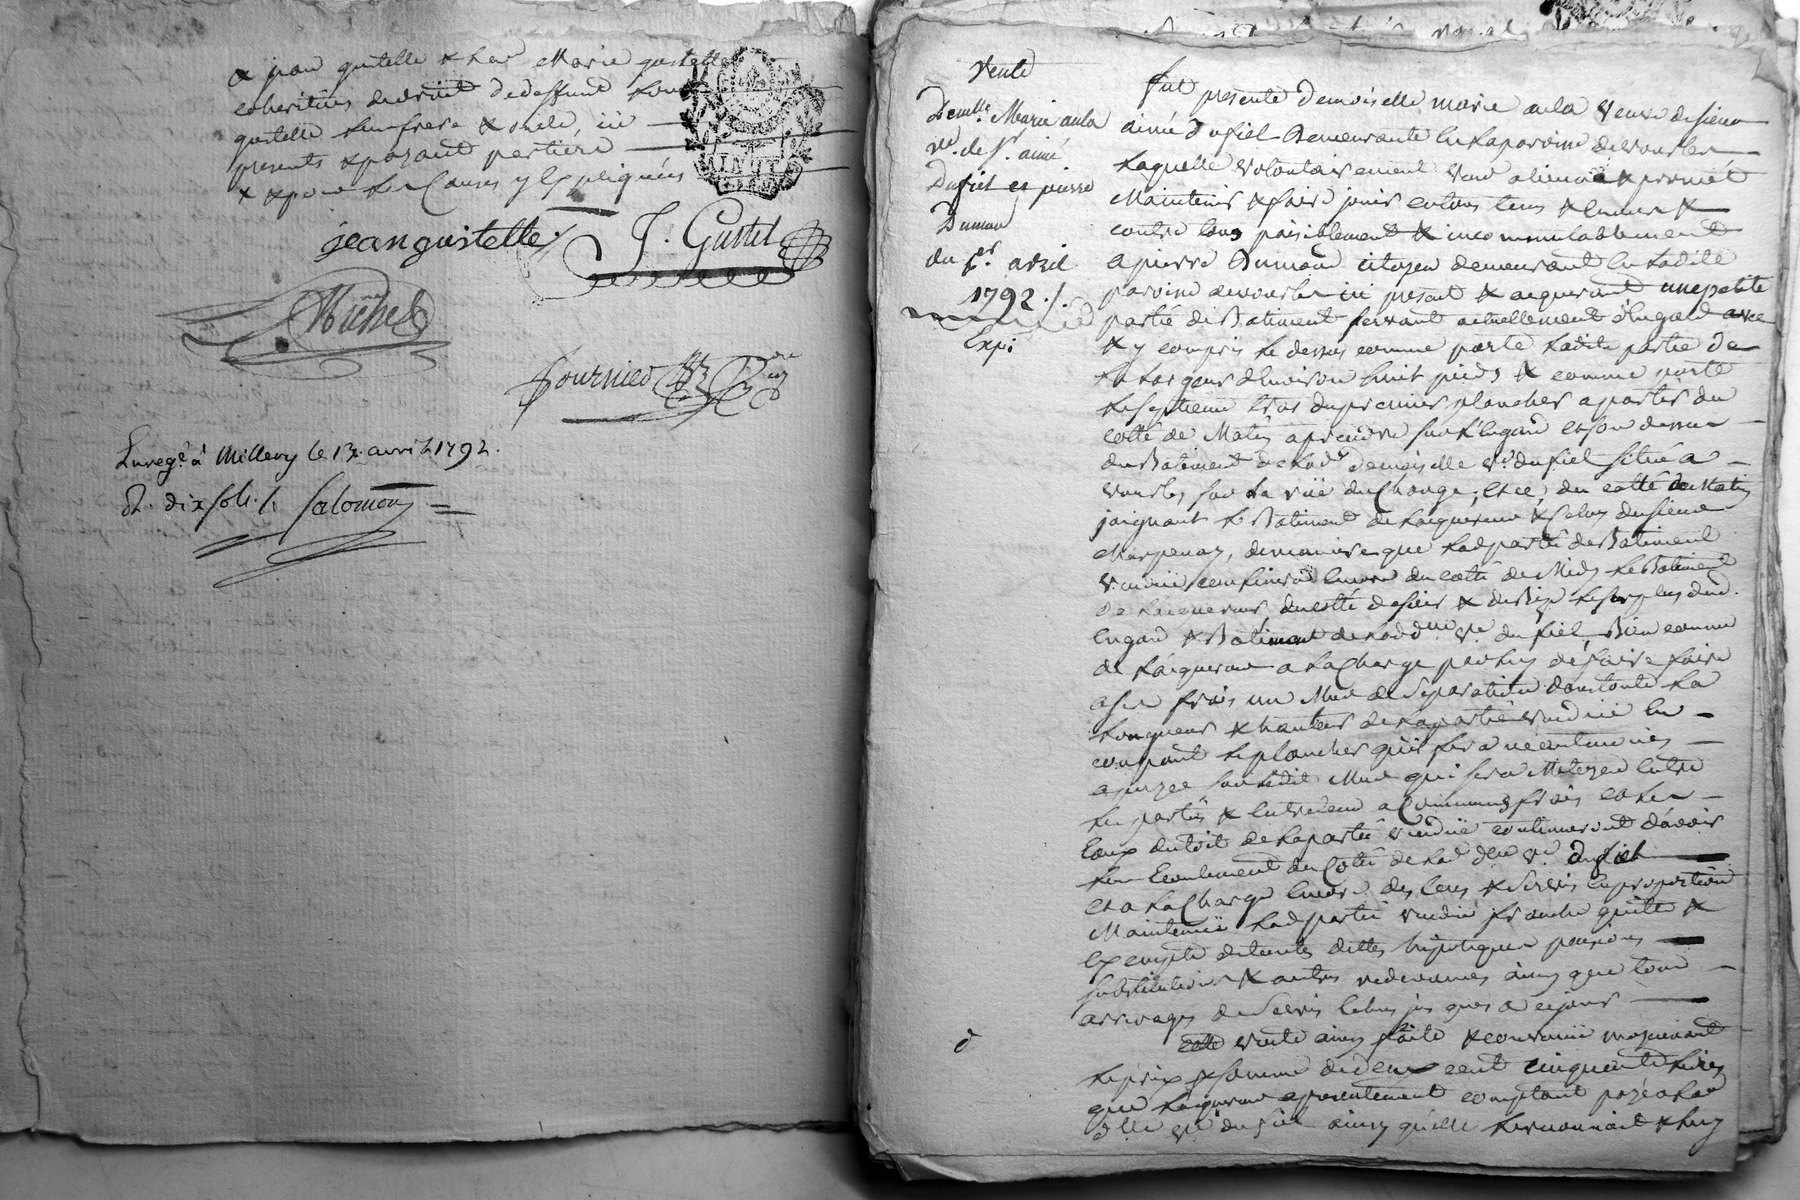 & jean gustelle & les Marie gustelle
coheritiers de droit de deffunt
gustelle leur frere & oncle, ici
presents & posant
& pour les Causes y Expliquées
jean gustelle J. Gustel
Michel
fournier
Enreg.é à Millery le 13. avril 1792.
R. dix sols. /. Salomon
vente
Demlle. Marie aula
ve. de Sr. aimé
Dufiel et pierre
Dumon
du 1er. avril
1792./.
Expé
fut presente demoiselle marie aula veuve de sieur
aimé dufiel demeurante en la paroisse de vourles
Laquelle volontairement vend & promet
Maintenir & faire jouir en tous lieux &
contre tous paisiblement & incommutablement
a pierre Dumon citoyen demeurant en ladite
paroisse de vourles ici present & acquereur une petite
partie de Batiment servant actuellement d'Engard avec
& y compris le dessus comme porte ladite partie de
la Largeur d'Environ huit pieds & comme porte
le septieme du premier plancher a partir du
cotté de Matin a prendre sur l'Engard et son dessus
du Batiment de lad. demoiselle ve. dufiel situé a
vourles sur la rüe du Change, et ce, du cotté du Matin
joignant le Batiment de Lacquereur & celui du sieur
de maniere que lad partie de Batiment
vendüe confinera encore du cotté de Midy le Batiment
de Lacquereur, du cotté de soir & de Bize le surplus dud.
Engard & Batiment de lad dlle. ve. du fiel Bien comme
de Lacquereur a la Charge par luy de faire faire
a ses frais un Mur de Separation dans toute La
Longueur & hauteur de la partie vendüe en
coupant le plancher qu'il fera
apuyer sur ledit Mur qui sera Mitoyen Entre
les parties & Entretenu a Communs frais et les
Eaux du toit de la partie vendüe continueront d'avoir
leur Ecoulement du Coté de lad. dlle ve. dufiel
et a la Charge Encore des Cens & Servis En proportion
Maintenüe lad partie vendüe franche quitte &
Exempte de toutes dettes hipoteques pensions
substitutions & autres redevances ainsy que tous
arrerages de Servis Echus jusques a ce jour
vente ainsy faite & convenue moyenant
le prix & somme de deux cent cinquante Livres
que Lacquereur a presentement comptant payé a lad
dlle ve. du fiel ainsy qu'elle le reconnait & luy